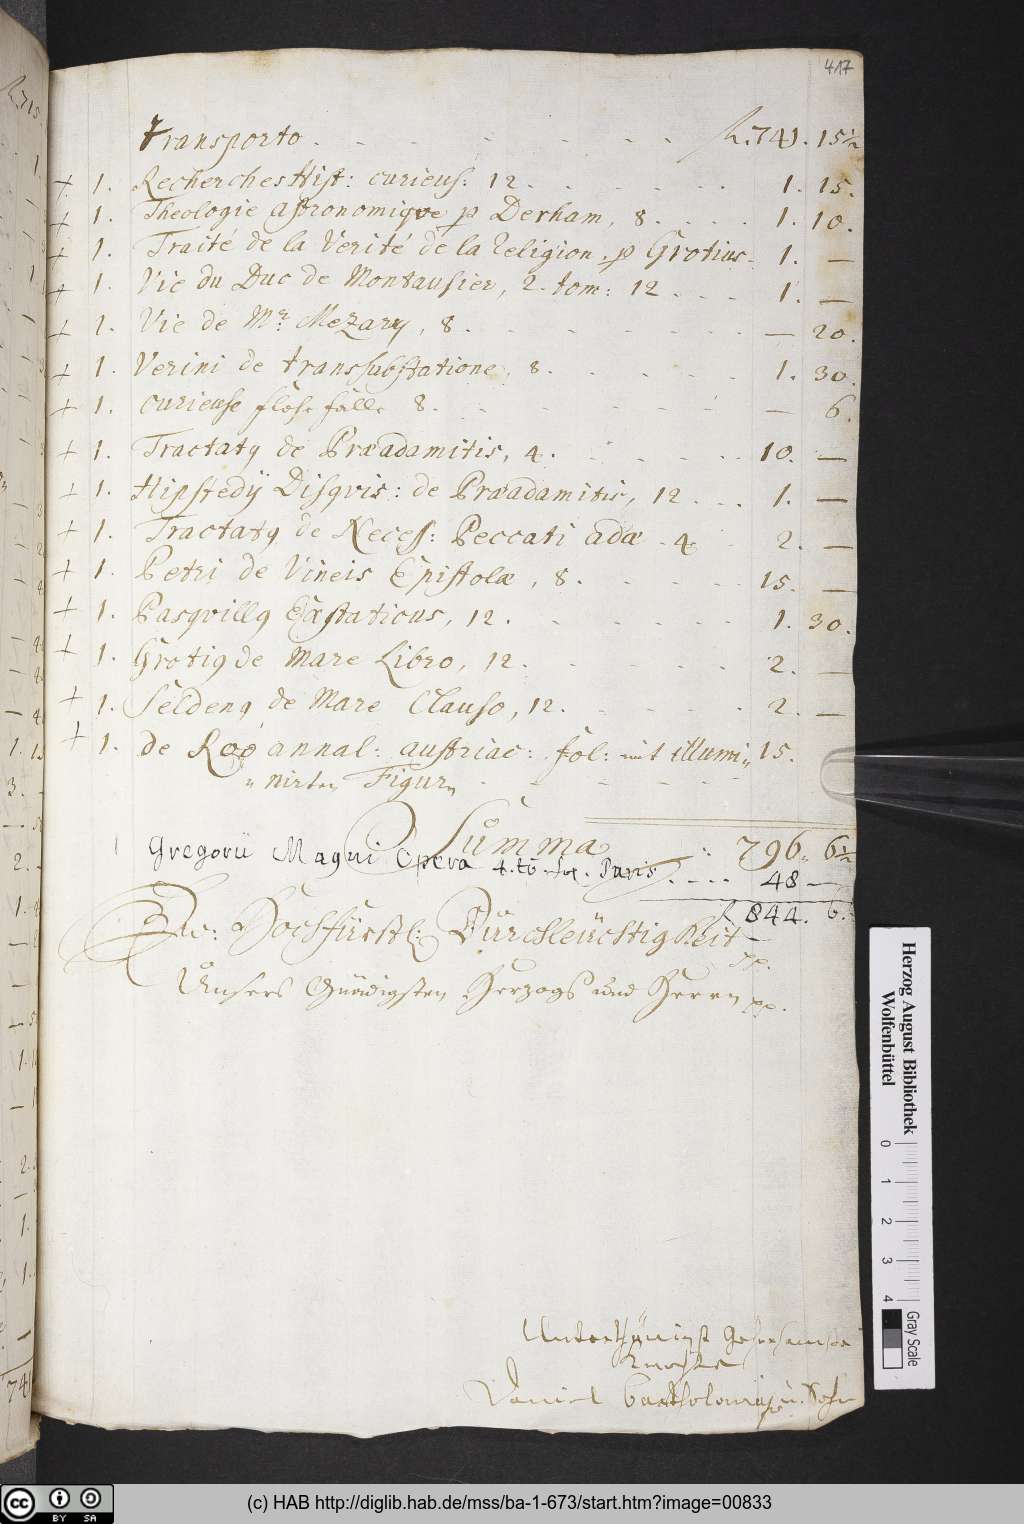 417
Transporto . . . . . . . . . fl. 741. 15½
+ 1. Recherches Hist: curieus: 12. . . . . . 1. 15.
+ 1. Theologie Astronomique p Derham, 8. . . . . 1. 10.
+ 1. Traité de la Verité de la religion. p Grotius. 1. —
+ 1. Vie du Duc de Montausier, 2. tom: 12 . . . 1. —
+ 1. Vie de Mr. Mezary, 8. . . . . . . — 20.
+ 1. Verini de transsubstatione, 8. . . . . . 1. 30.
+ 1. curieuse flohe falle 8. . . . . . . — 6.
+ 1. Tractatq de Præadamitis, 4. . . . . . 10. —
+ 1. Hipstedÿ Disqvis: de Præadamitis, 12 . . . 1. —
+ 1. Tractatq de Necess: Peccati adæ . 4 . 2. —
+ 1. Petri de Vineis Epistolæ, 8. . . . . . 15. —
+ 1. Pasqvillq Exstaticus, 12. . . . . . . 1. 30.
+ 1. Grotiq de Mare Libro, 12. . . . . . 2. —
+ 1. Seldenq de Mare Clauso, 12. . . . . . 2. —
+ 1. de Roo annal: austriac: fol: mit illumi„ 15.
„ nirten Figurn . . . . . .
Summa . . 796. 6½
1 Gregorii Magni Opera 4. to. fol. Paris. . . . . 48 —
fl 844. 6.
Sr: Hochfürstl: Dürchleüchtigkeit
pp.
Unsers Gnädigsten Herzogs und Herrn pp.
Unterthänigst Gehorsamste
Knechte
Daniel Bartholomæi u. Sohn
Herzog August Bibliothek
Wolfenbüttel
0 1 2 3 4
Gray Scale
fl. 715.
741
cc BY SA
(c) HAB http://diglib.hab.de/mss/ba-1-673/start.htm?image=00833